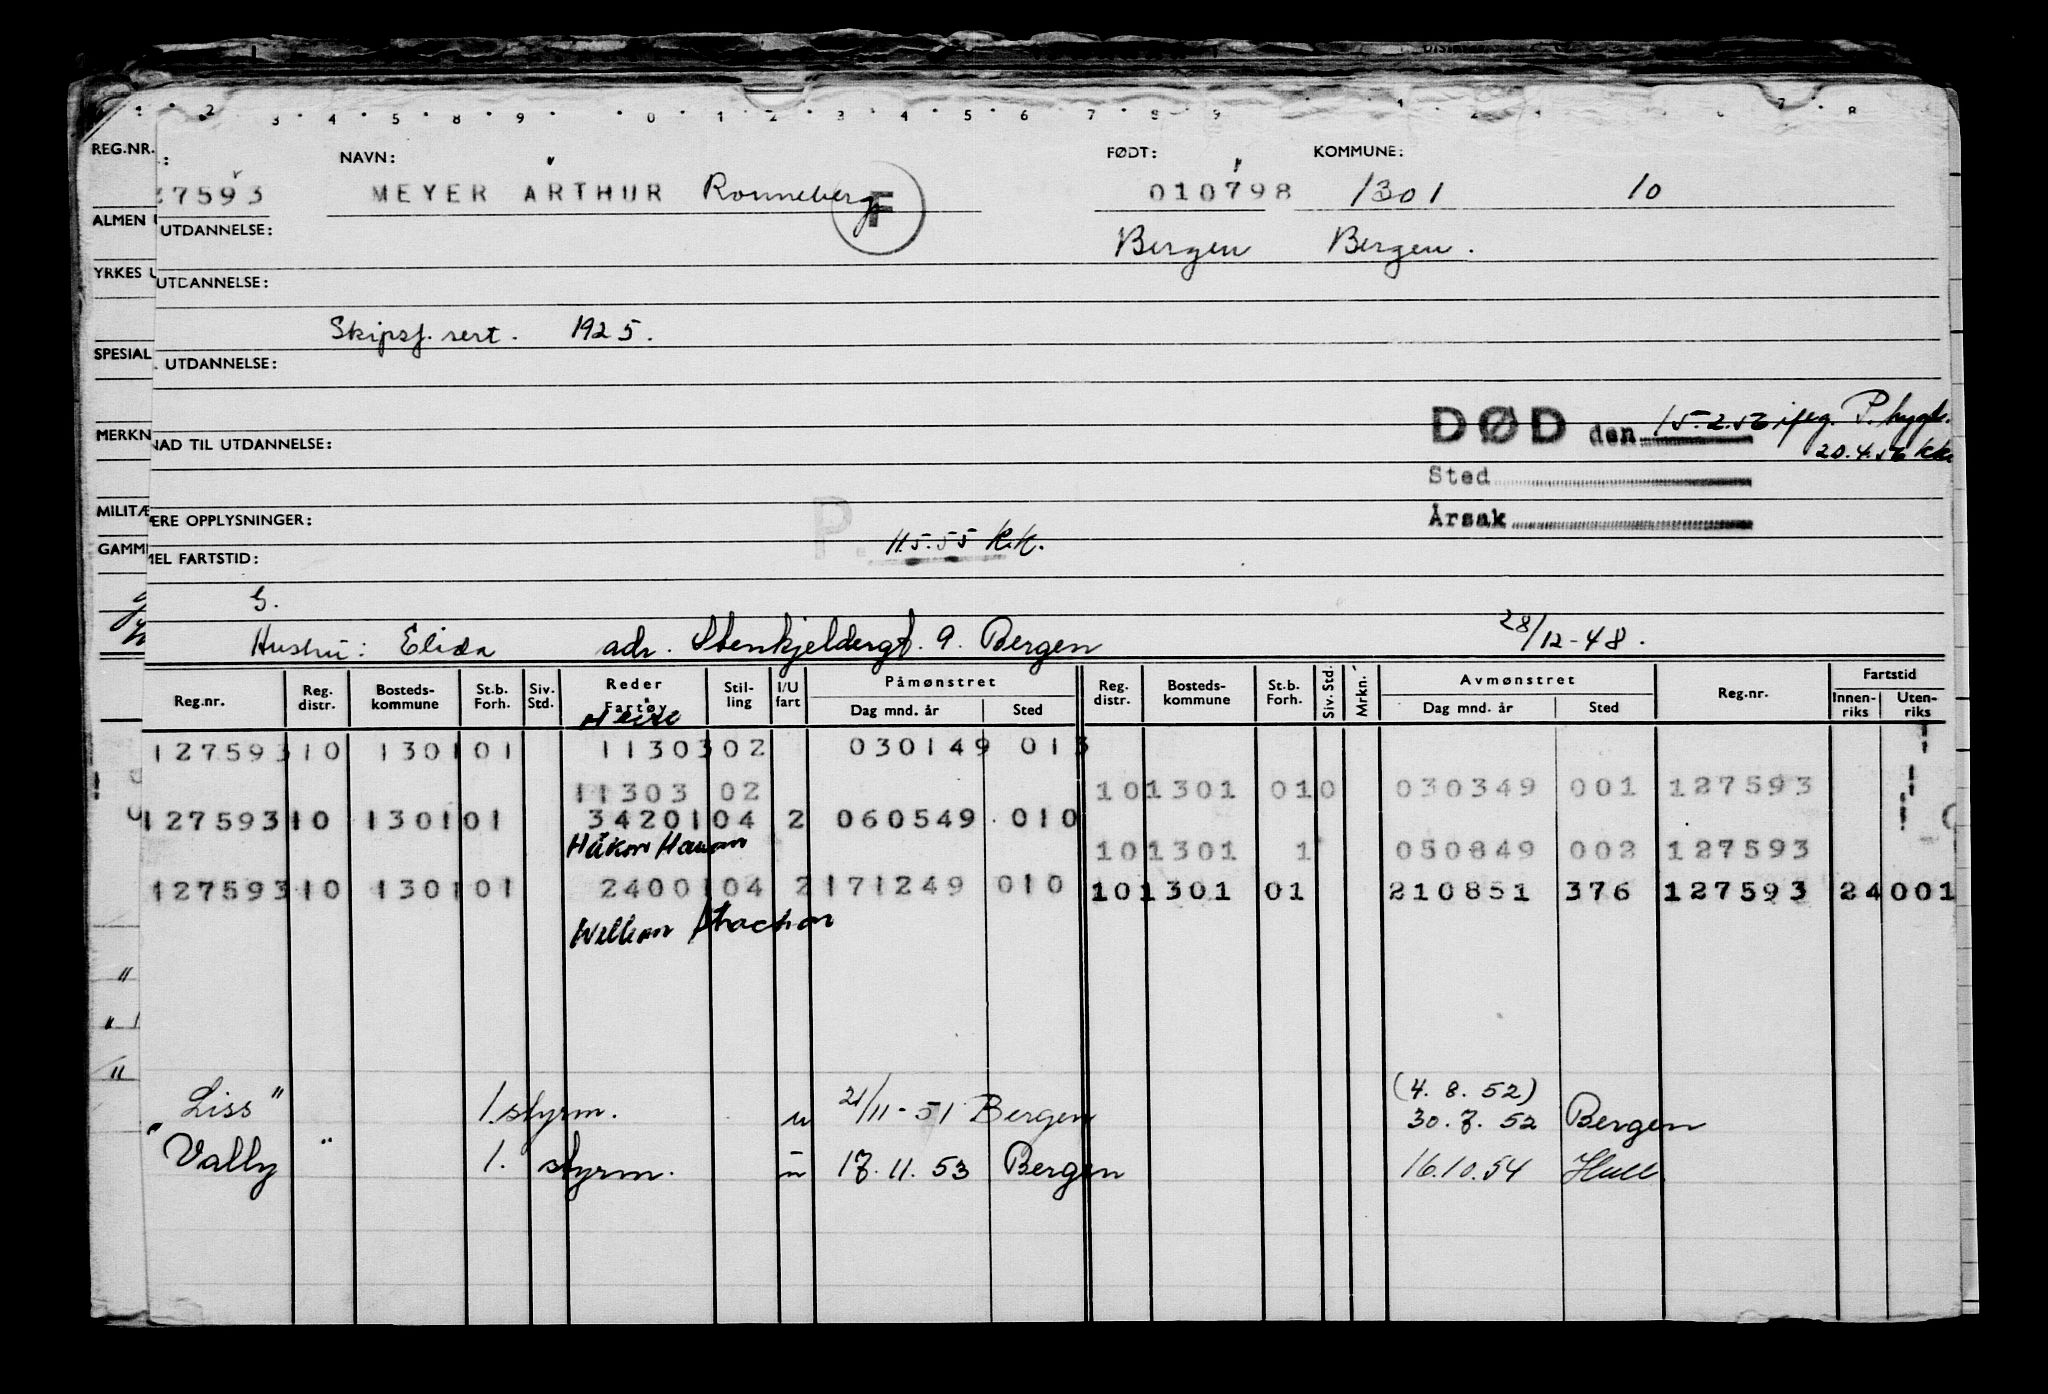 1 · 2 · 3 · 4 · 5 · 8 · 9 · · 0 · 1 · 2 · 3 · 4 · 5 · 6 · 7 · 8 · 9
REG.NR. NAVN: FØDT: KOMMUNE:
27593 MEYER ARTHUR Ronneberg F 010798 1301 10
ALMEN UTDANNELSE: Bergen Bergen.
YRKES UTDANNELSE:
Skipsf. sert. 1925.
SPESIAL UTDANNELSE:
DØD den 15.2.56 ifeg. P. hygt.
MERKNAD TIL UTDANNELSE: 20.4.56 KK
Sted
MILITÆRE OPPLYSNINGER: Årsak
P. 11.5.55 K.K.
GAMMEL FARTSTID:
G.
Hustru: Elida adr. Stenkjeldergt. 9. Bergen 28/12-48.
Reg.nr. Reg. distr. Bosteds-kommune St.b. Forh. Siv. Std. Reder Fartøy Stil-ling I/U fart Påmønstret Dag mnd. år Sted Reg. distr. Bosteds-kommune St.b. Forh. Siv. Std. Mrkn. Avmønstret Dag mnd. år Sted Reg.nr. Fartstid Innen-riks Uten-riks
127593 10 1301 01 11303 02 030149 013
11303 02 10 1301 010 030349 001 127593
127593 10 1301 01 34201 04 2 060549 010
Håkon Hauan 10 1301 1 050849 002 127593
127593 10 1301 01 2400 104 2 171249 010 10 1301 01 210851 376 127593 24 001
William Strachan
(4. 8. 52)
Liss" 1. styrm. u 21/11-51 Bergen 30. 7. 52 Bergen
"Vally" 1. styrm. u 17. 11. 53 Bergen 16.10.54 Hull